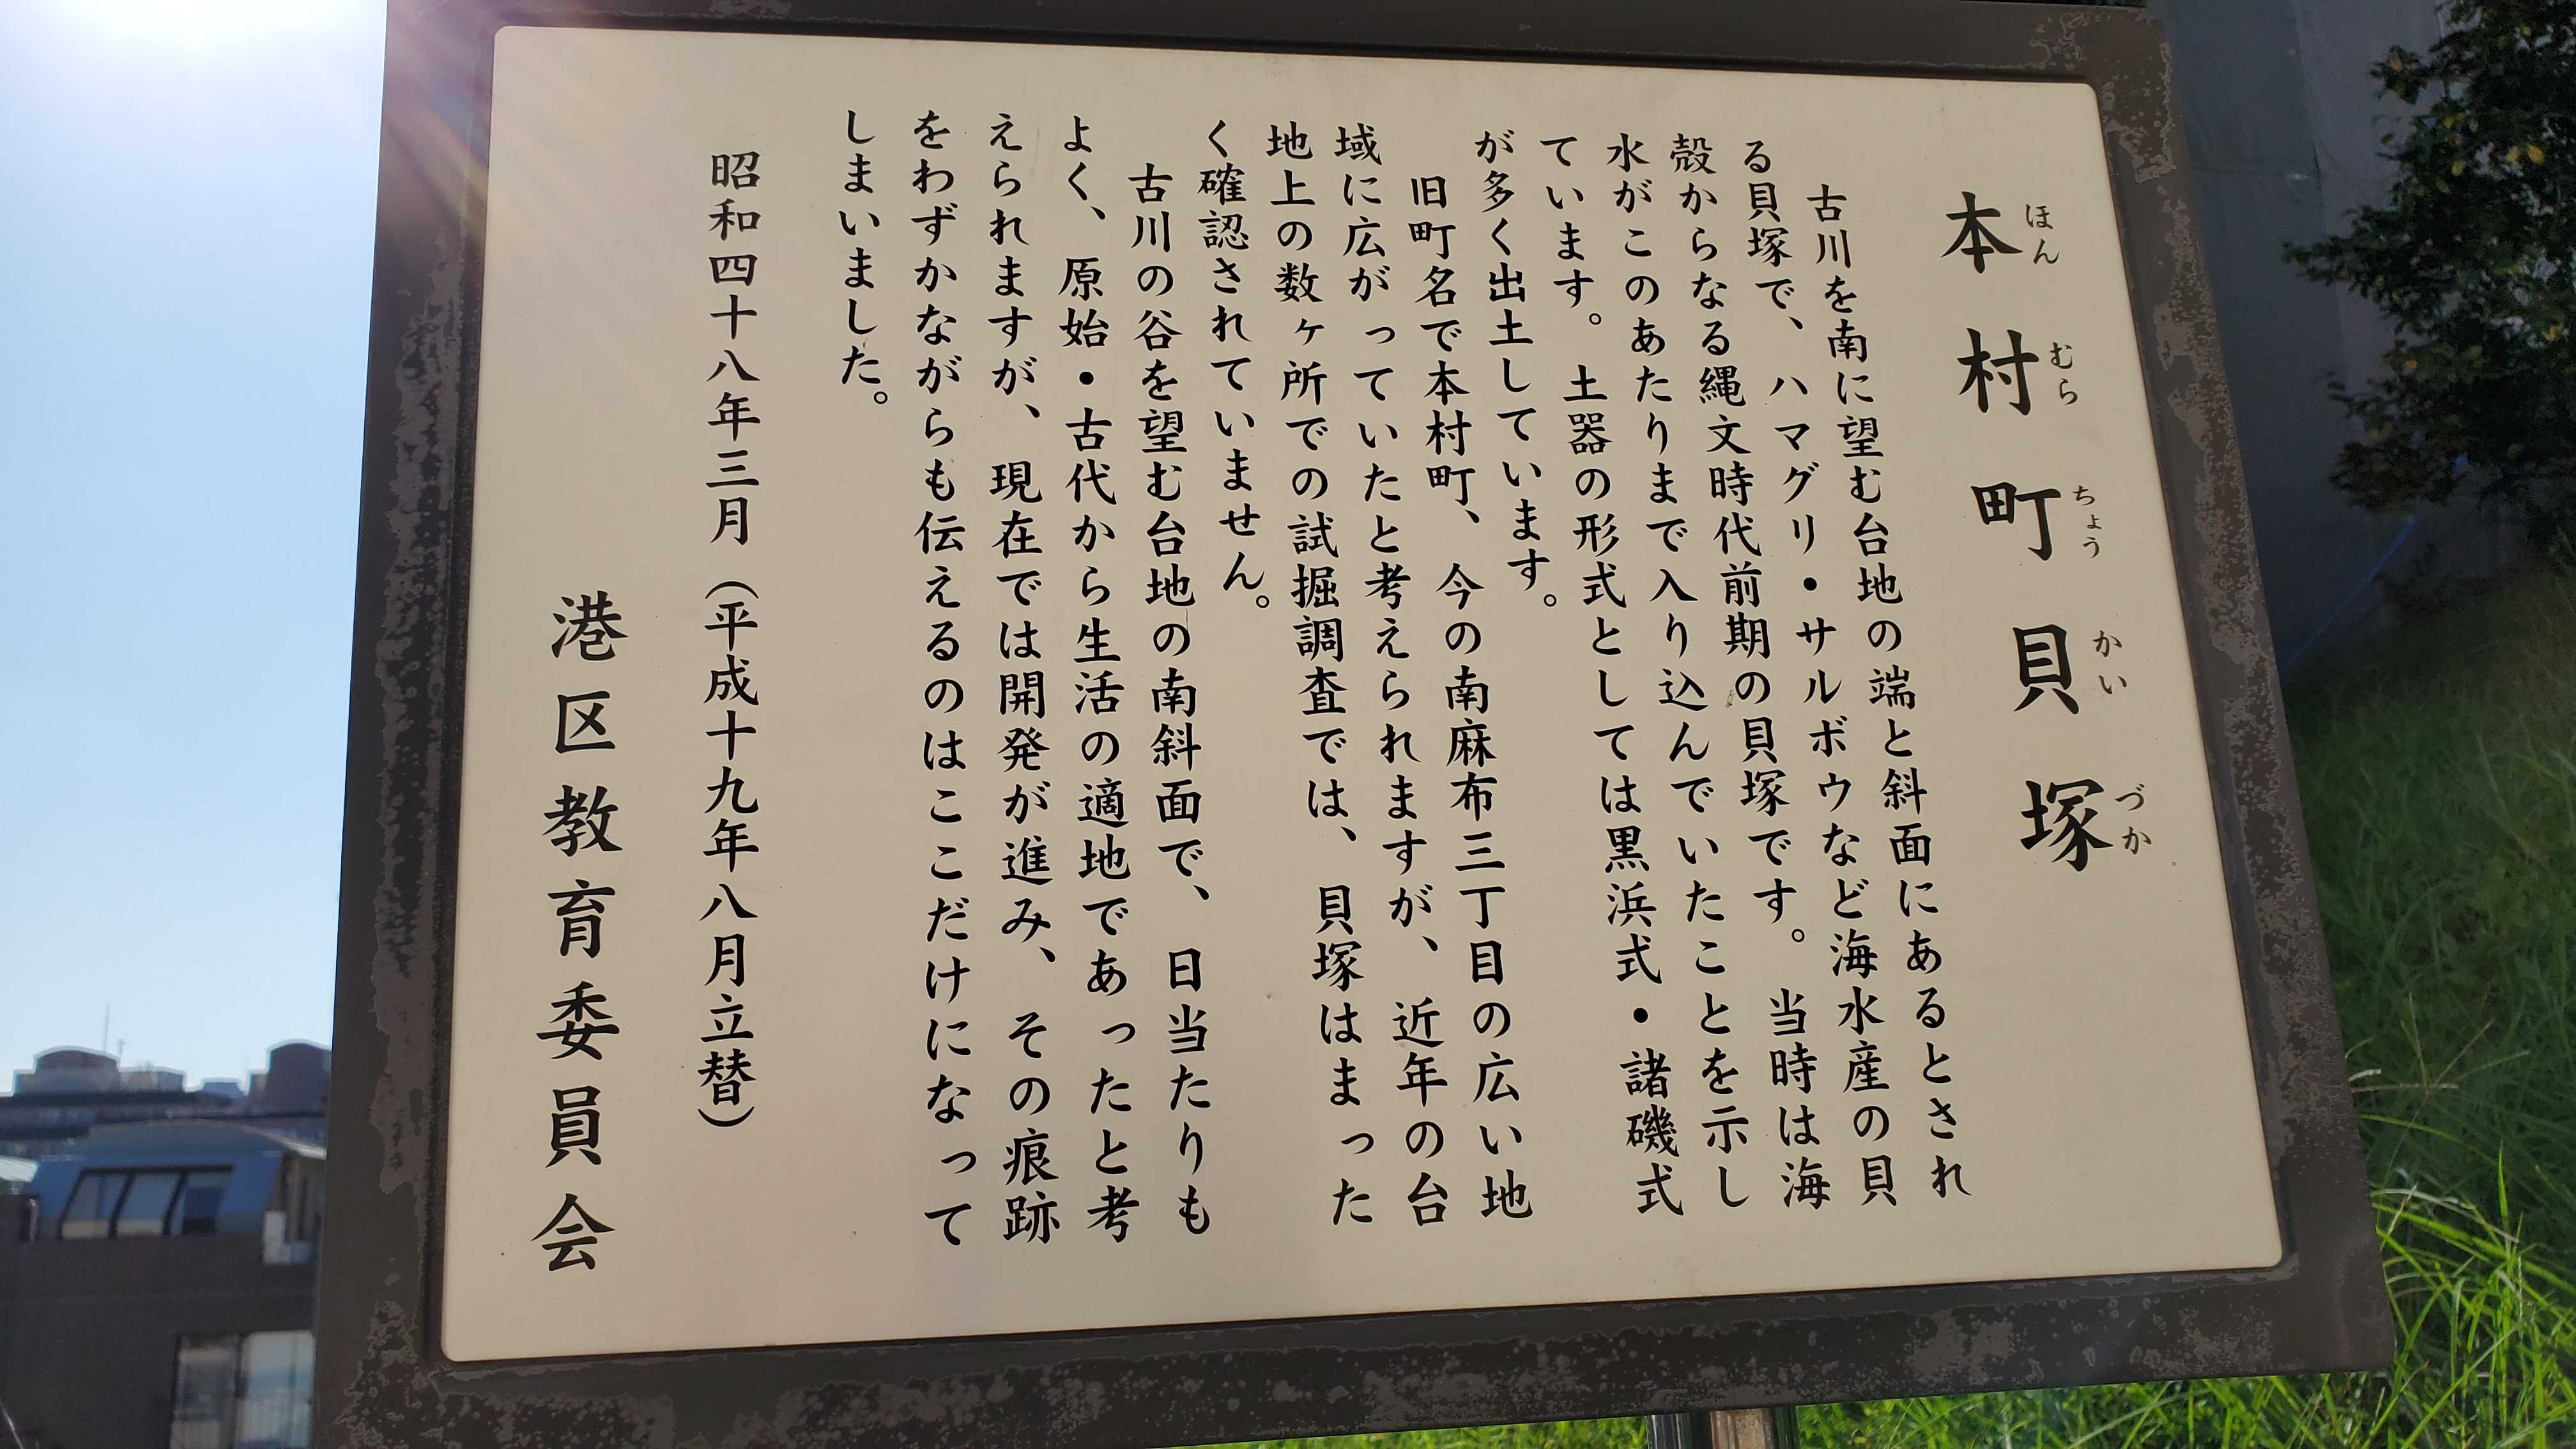 本村町貝塚
ほんむらちょうかいづか
古川を南に望む台地の端と斜面にあるとされ
る貝塚で、ハマグリ・サルボウなど海水産の貝
殻からなる縄文時代前期の貝塚です。当時は海
水がこのあたりまで入り込んでいたことを示し
ています。土器の形式としては黒浜式・諸磯式
が多く出土しています。
旧町名で本村町、今の南麻布三丁目の広い地
域に広がっていたと考えられますが、近年の台
地上の数ヶ所での試掘調査では、貝塚はまった
く確認されていません。
古川の谷を望む台地の南斜面で、日当たりも
よく、原始・古代から生活の適地であったと考
えられますが、現在では開発が進み、その痕跡
をわずかながらも伝えるのはここだけになって
しまいました。
昭和四十八年三月（平成十九年八月立替）
港区教育委員会